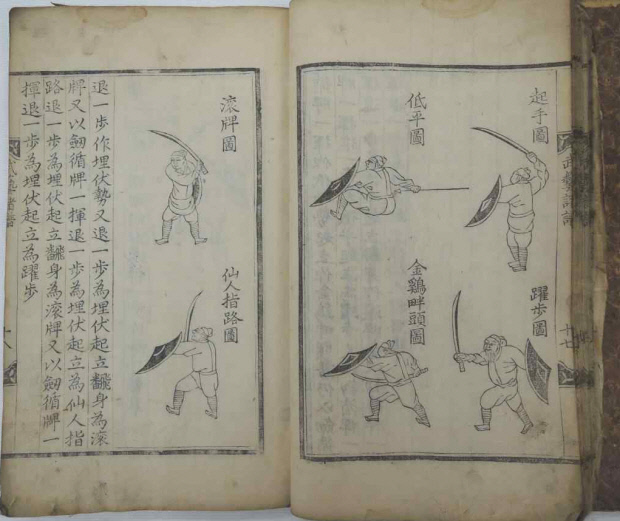 武藝諸譜
十七
起手圖
躍步圖
低平圖
金鷄畔頭圖
滚牌圖
仙人指路圖
退一步作埋伏勢又退一步為埋伏起立飜身為滚
牌又以劒循牌一揮退一步為埋伏起立為仙人指
路退一步為埋伏起立飜身為滚牌又以劒循牌一
揮退一步為埋伏起立為躍步
武藝諸譜
十八